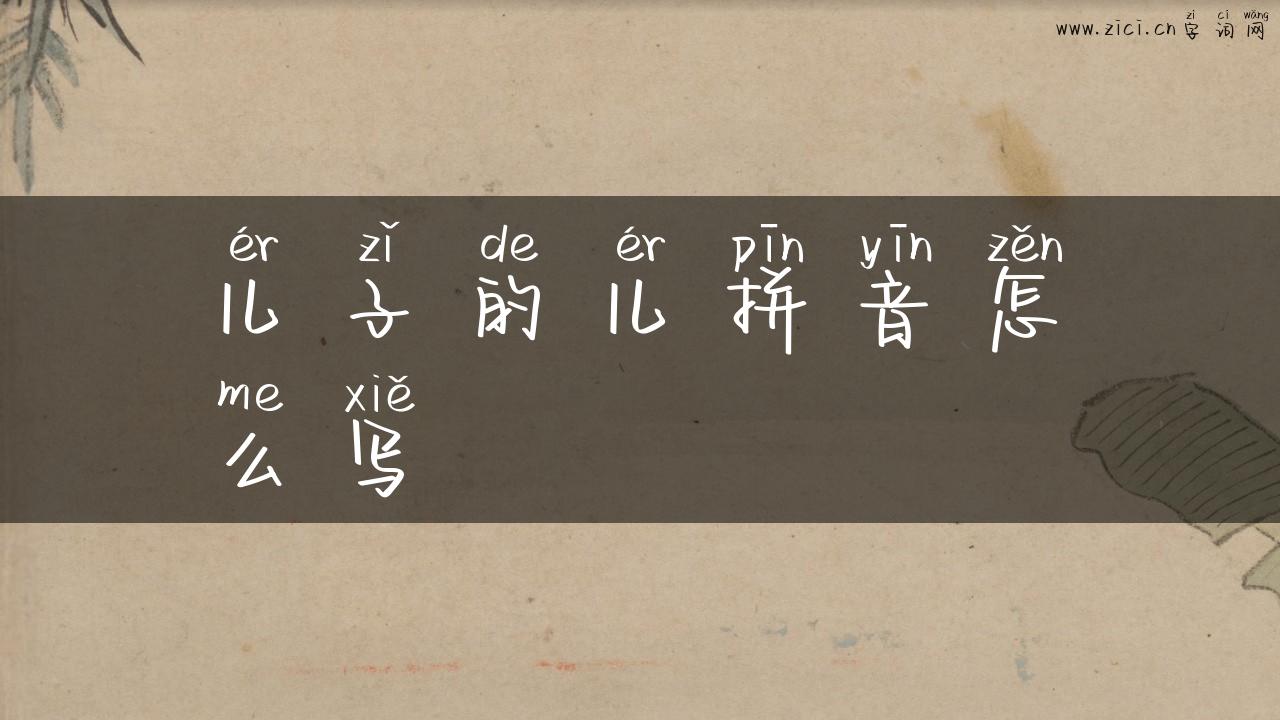 zì cí wǎng
www.zici.cn 字 词 网
ér zǐ de ér pīn yīn zěn
儿 子 的 儿 拼 音 怎
me xiě
么 写